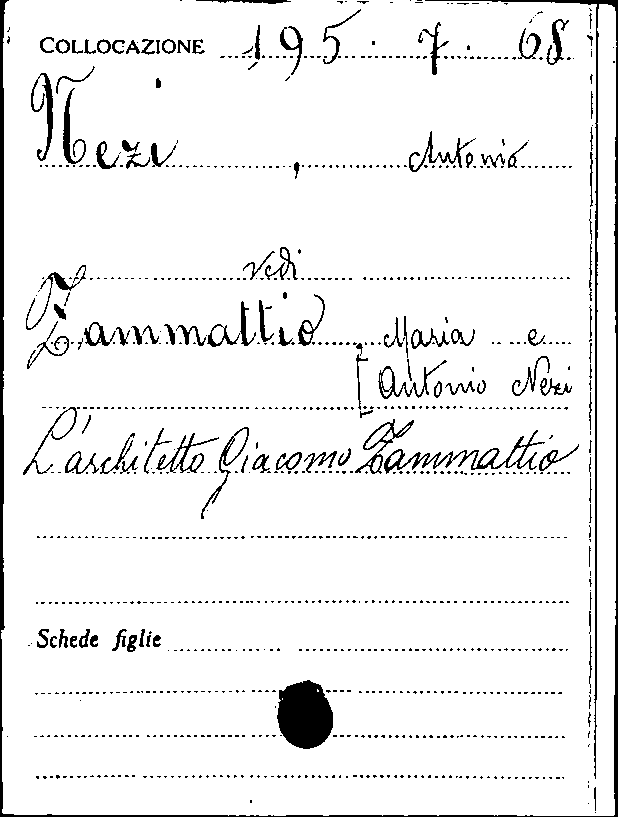 COLLOCAZIONE 195. 7. 68
Nezi, Antonio
vedi
Zammattio, Maria e
[Antonio Nezi
L'architetto Giacomo Zammattio
Schede figlie